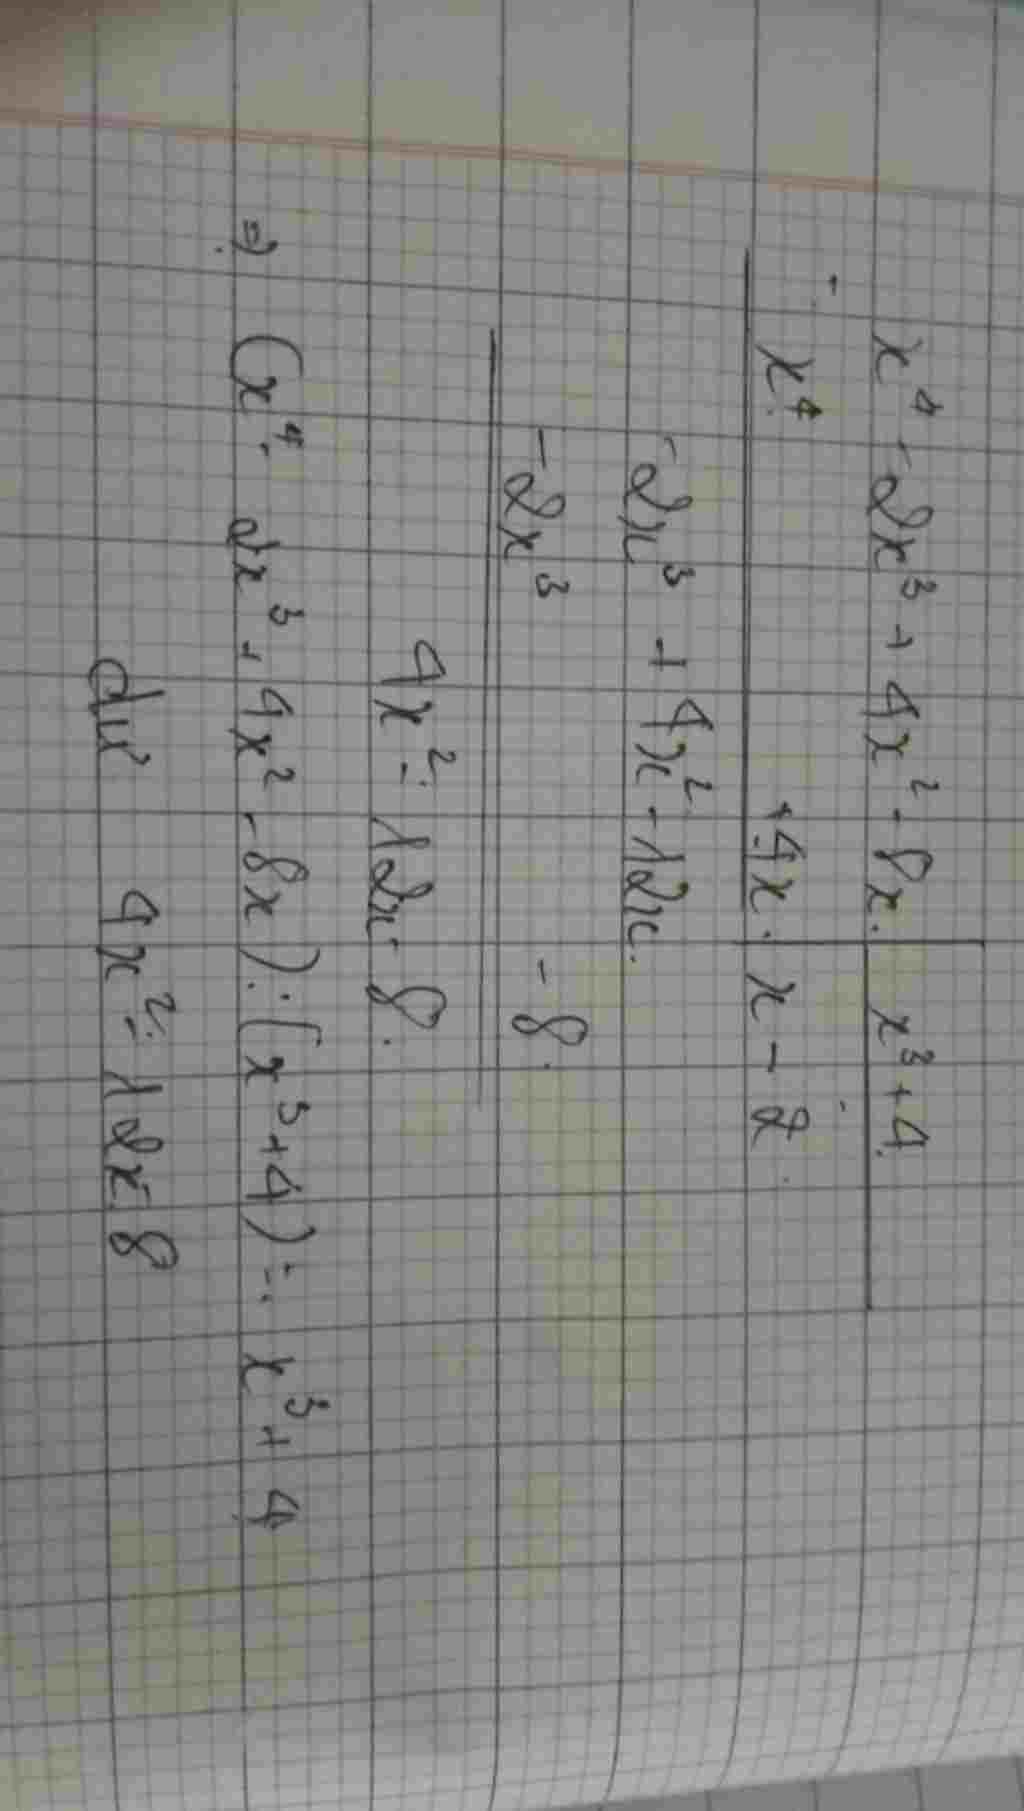 x⁴ - 2x³ + 4x² - 8x. | x³ + 4
- x⁴ + 4x. | x - 2
-2x³ + 4x² - 12x.
-2x³ - 8.
4x² - 12x - 8.
=) (x⁴ - 2x³ + 4x² - 8x) : (x³ + 4) = x³ + 4
dư 4x² - 12x - 8